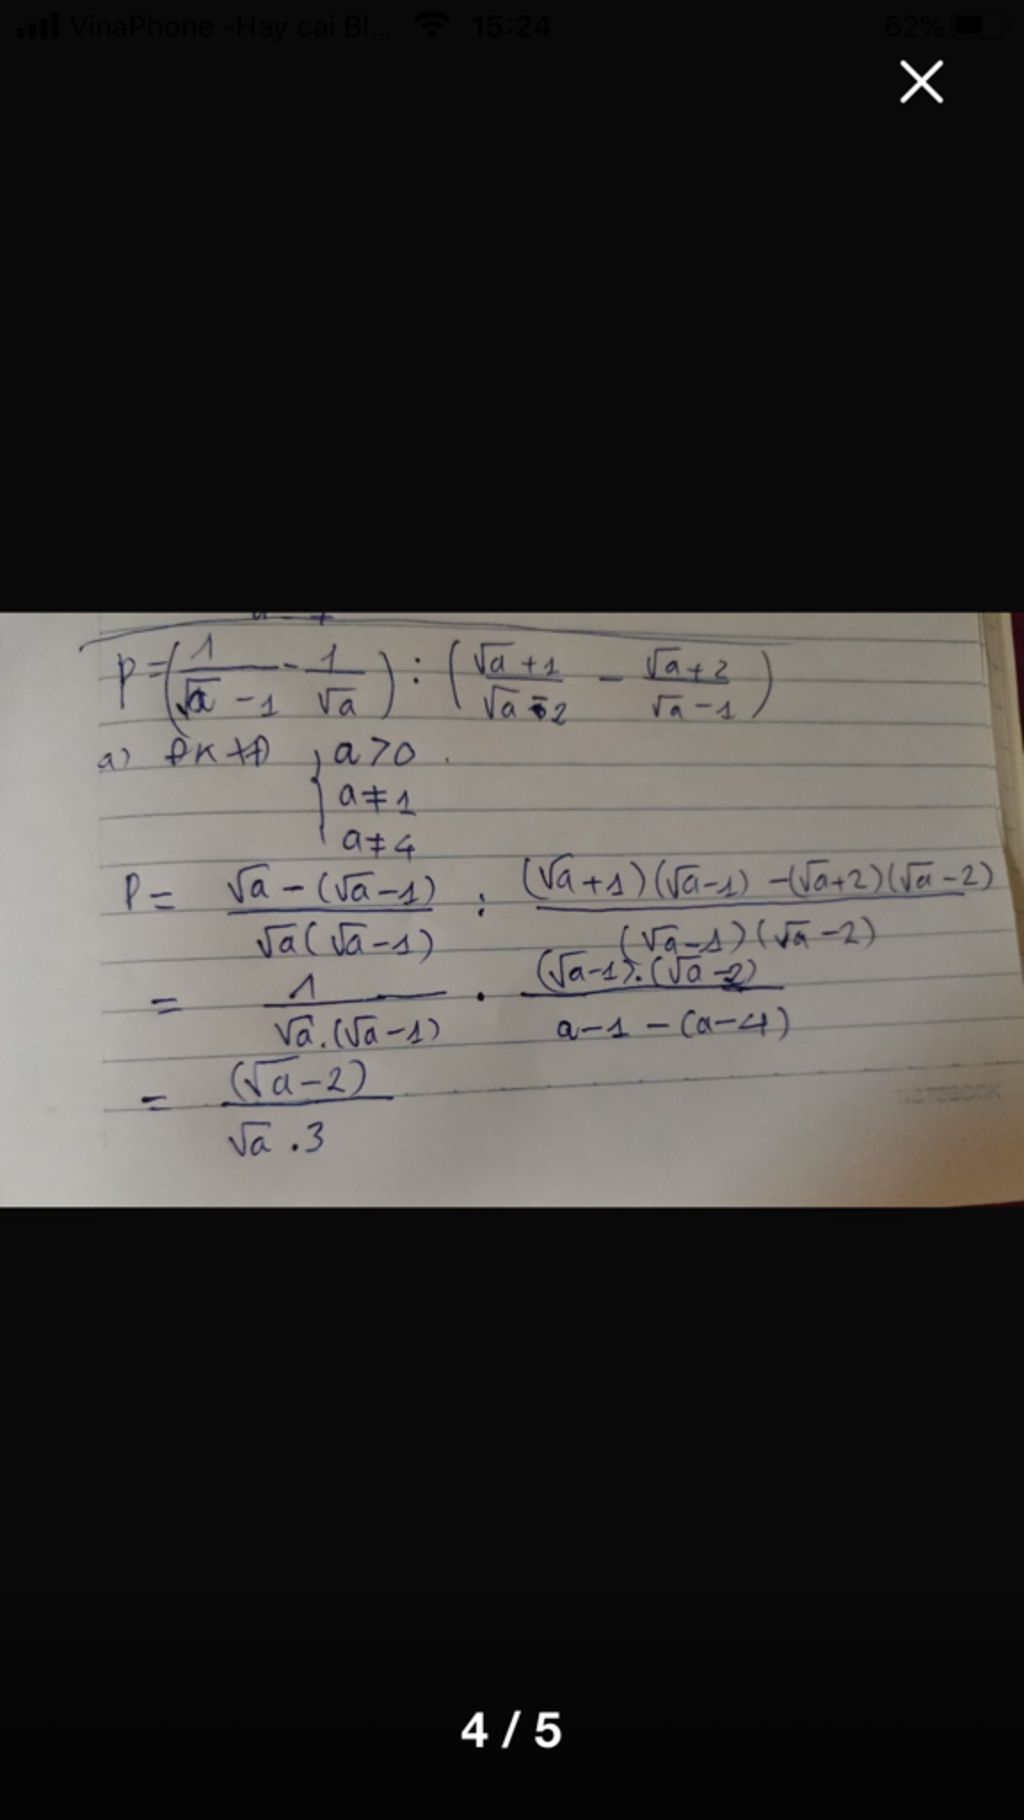 VinaPhone -Hay cai Bl... 15:24 62%
P=(1/(√a -1) - 1/√a) : ((√a +1)/(√a -2) - (√a+2)/(√a -1))
a) ĐKXĐ { a>0.
a≠1
a≠4
P= (√a-(√a-1))/(√a(√a-1)) : ((√a+1)(√a-1)-(√a+2)(√a-2))/((√a-1)(√a-2))
= 1/(√a.(√a-1)) . ((√a-1).(√a-2))/(a-1-(a-4))
= (√a-2)/(√a.3)
NOTEBOOK
4 / 5